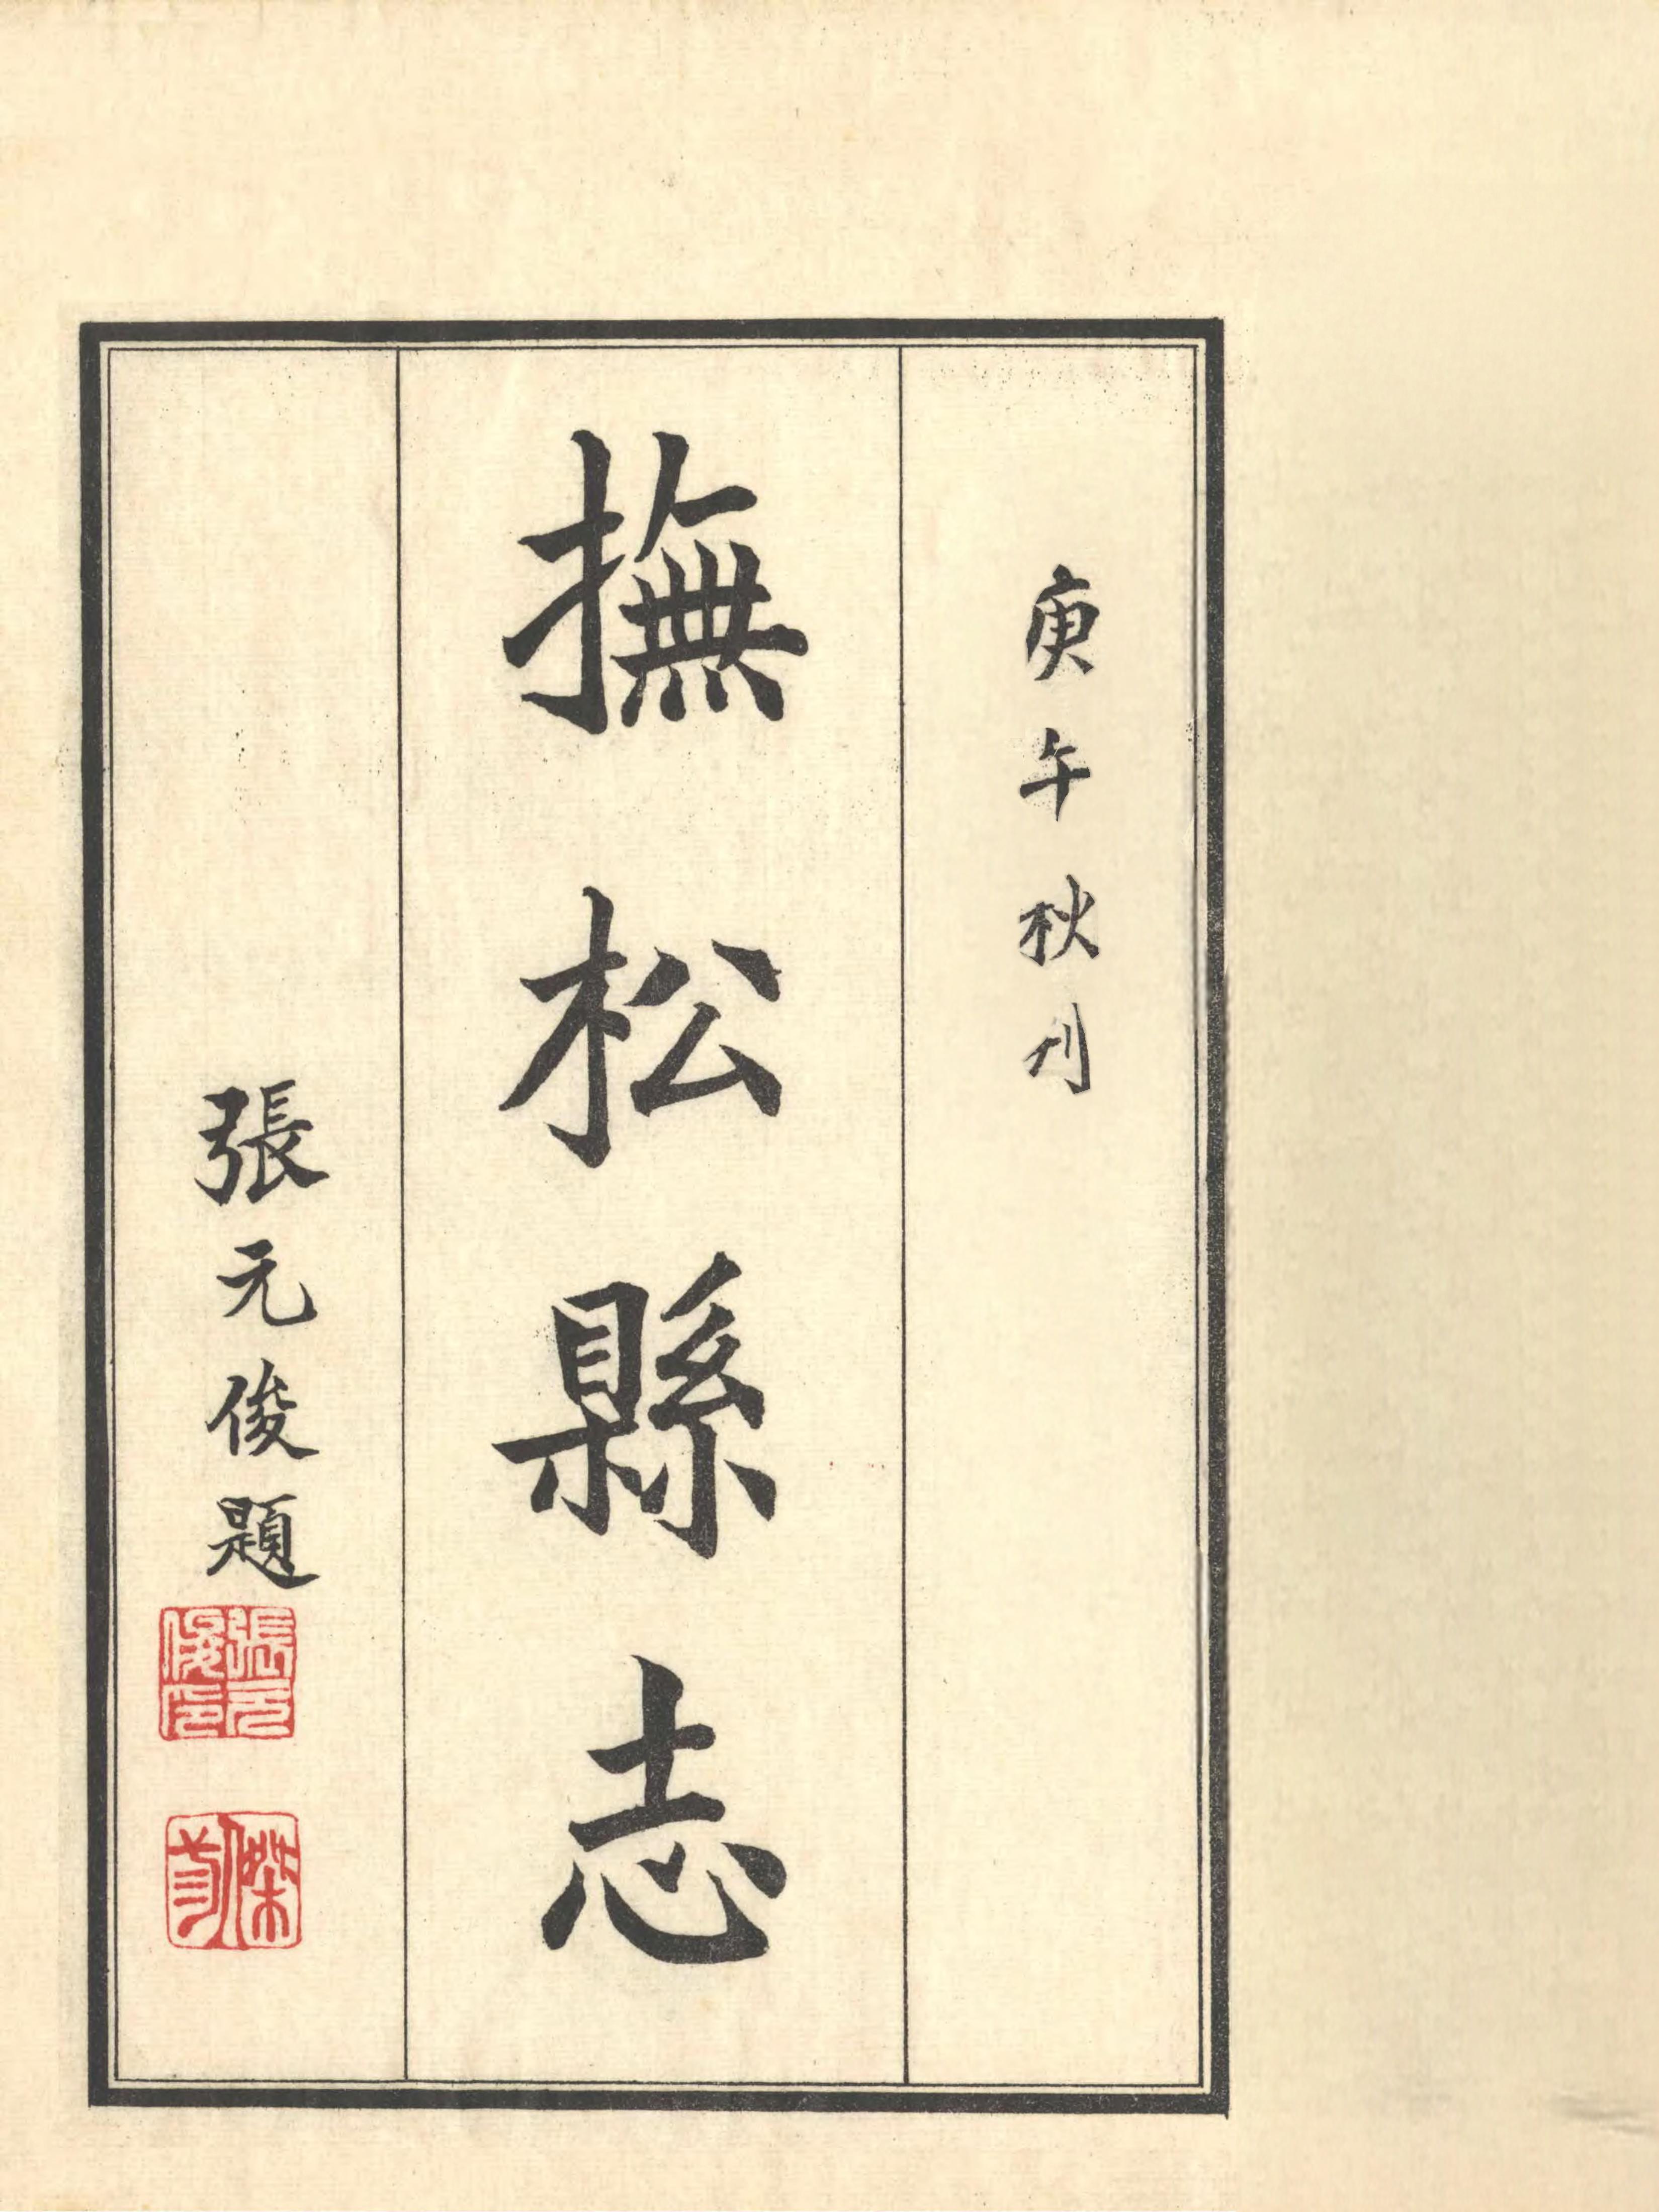 庚午秋刋
撫松縣志
張元俊題
張元俊印
傑